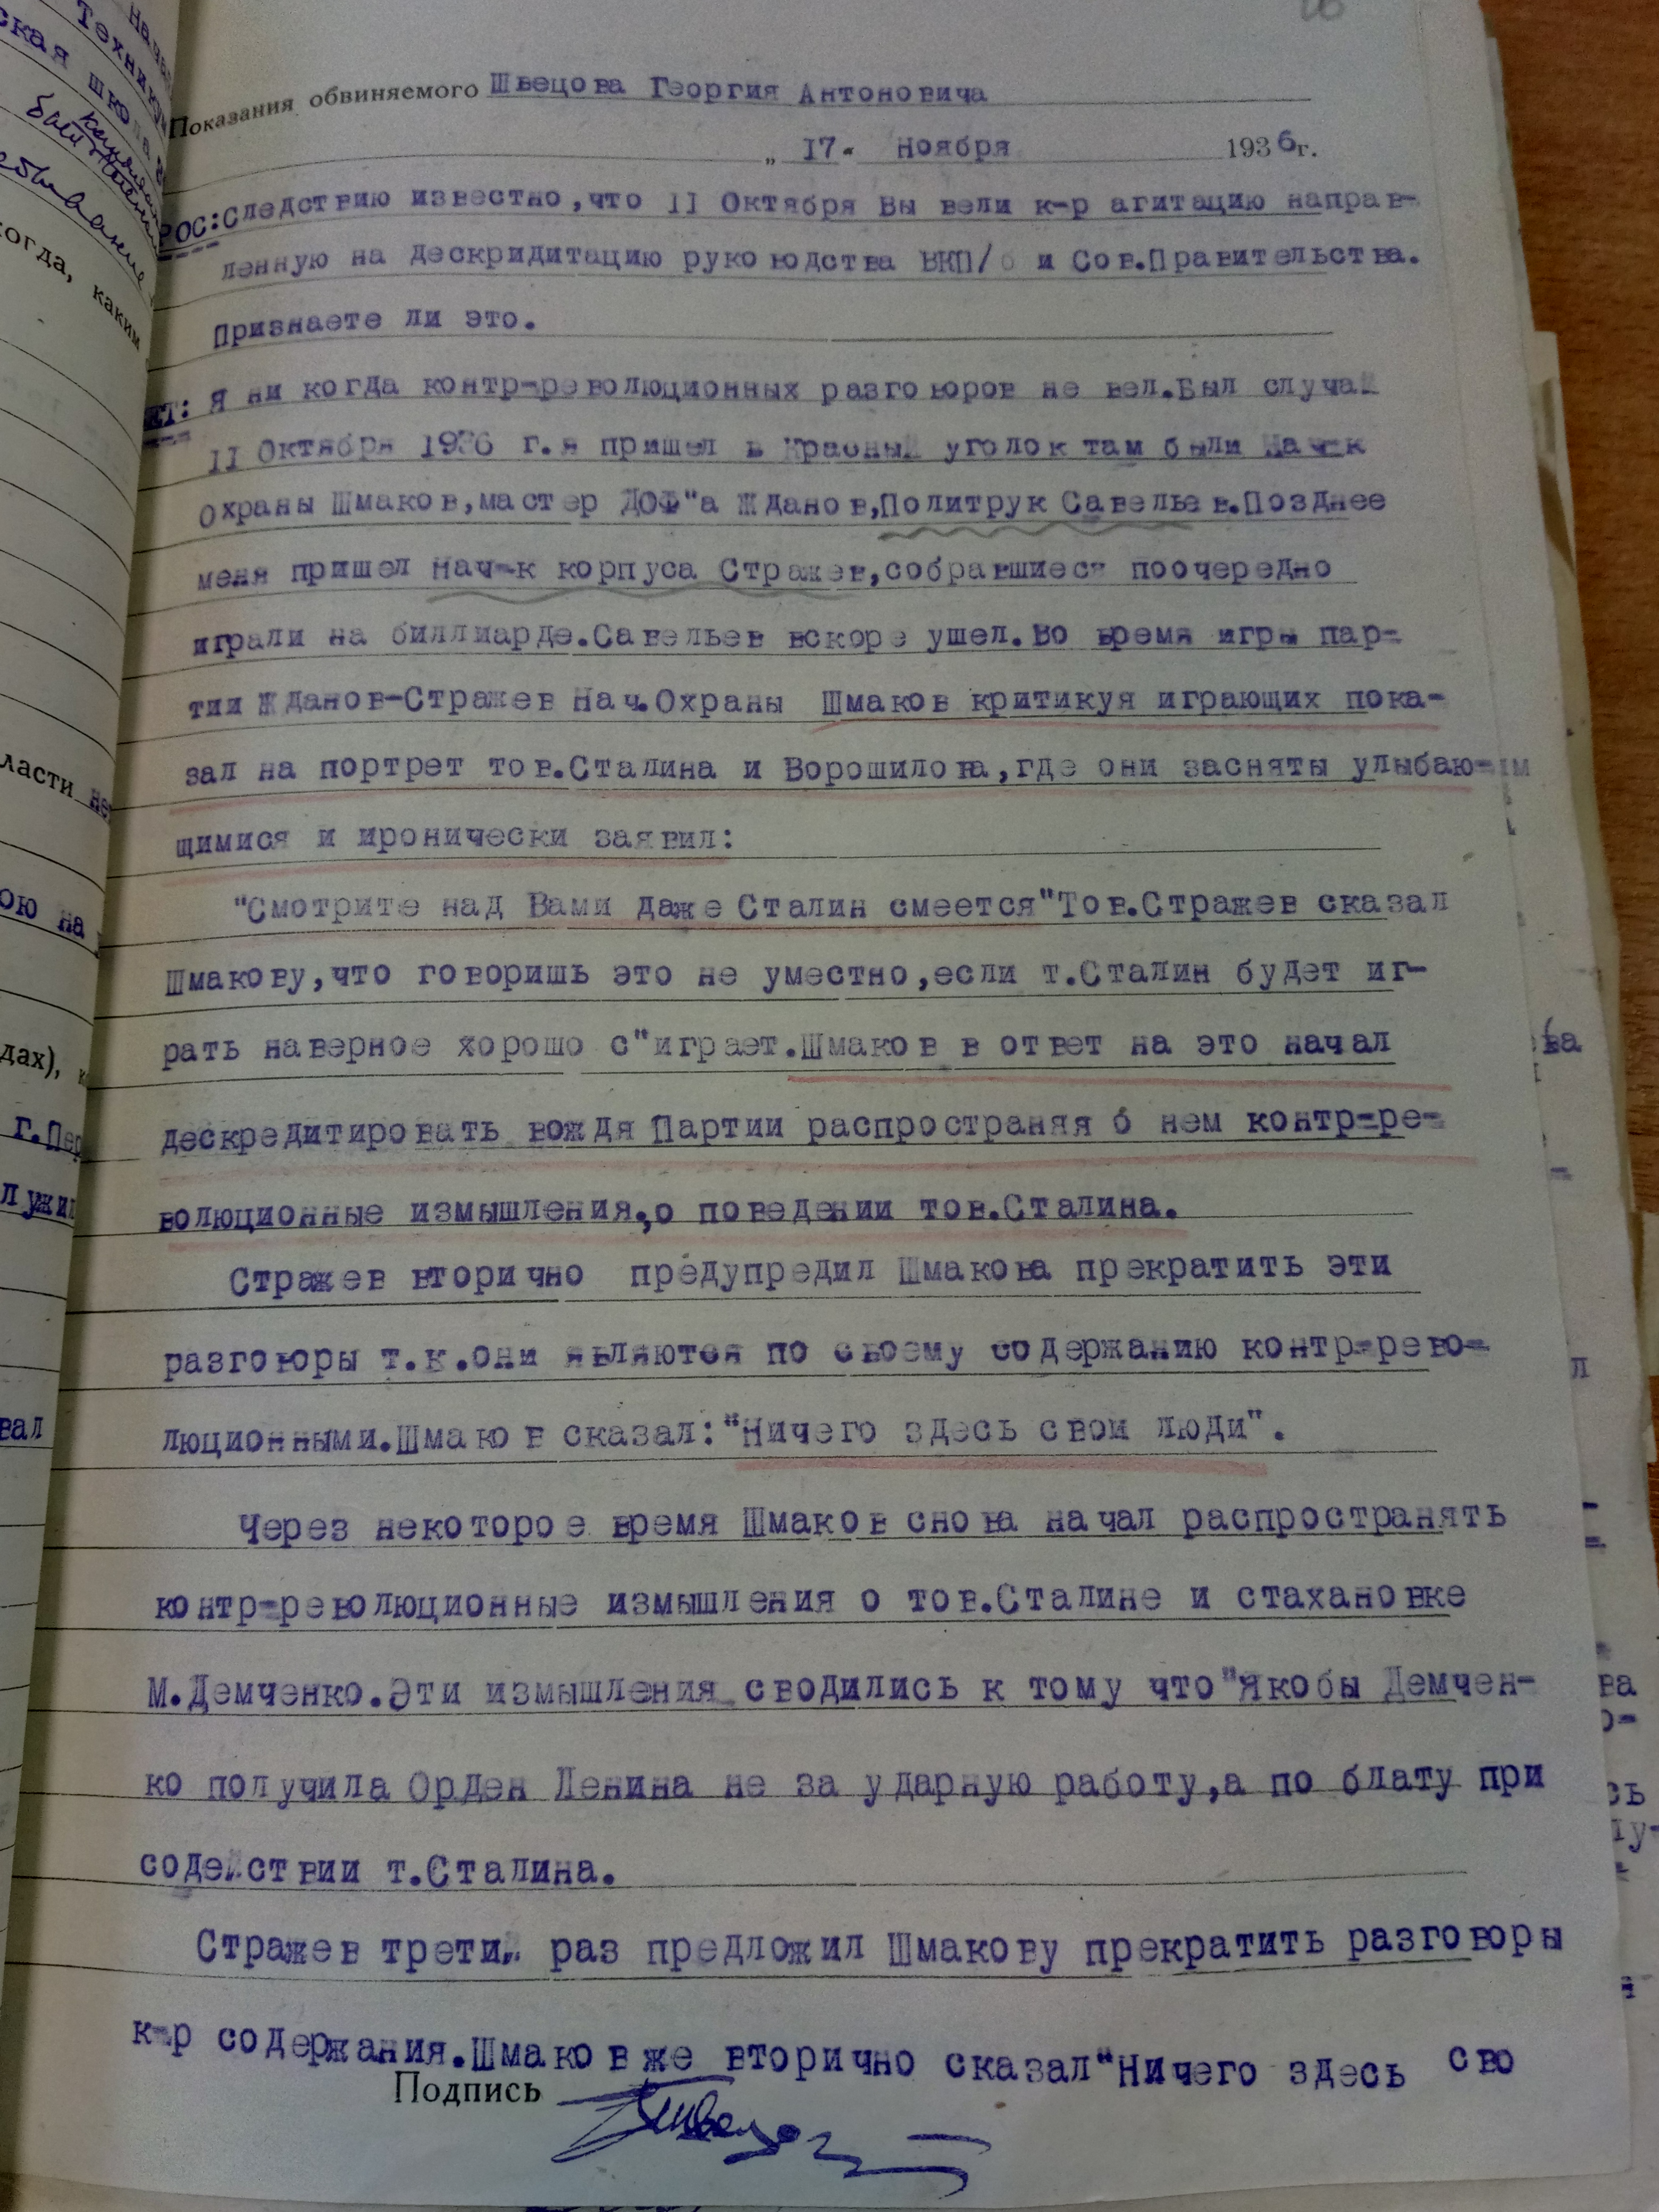 Показания обвиняемого Швецова Георгия Антоновича
„ 17. Ноября 1936г.
РОС:Следствию известно,что 11 Октября Вы вели к-р агитацию направ-
ленную на дескридитацию руководства ВКП/б и Сов.Правительства.
Признаете ли это.
ЕТ: Я ни когда контр-революционных разговоров не вел.Был случай
11 Октября 1936 г.я пришел в Красный уголок там были Нач-к
Охраны Шмаков,мастер ДОФ"а Жданов,Политрук Савельев.Позднее
меня пришел Нач-к корпуса Стражев,собравшиеся поочередно
играли на биллиарде.Савельев вскоре ушел.Во время игры пар-
тии Жданов-Стражев Нач.Охраны Шмаков критикуя играющих пока-
зал на портрет тов.Сталина и Ворошилова,где они засняты улыбаю-
щимися и иронически заявил:
"Смотрите над Вами даже Сталин смеется"Тов.Стражев сказал
Шмакову,что говоришь это не уместно,если т.Сталин будет иг-
рать наверное хорошо с"играет.Шмаков в ответ на это начал
дескредитировать вождя Партии распространяя о нем контр-ре-
волюционные измышления,о поведении тов.Сталина.
Стражев вторично предупредил Шмакова прекратить эти
разговоры т.к.они являются по своему содержанию контр-рево-
люционными.Шмаков сказал:"Ничего здесь свои люди".
Через некоторое время Шмаков снова начал распространять
контр-революционные измышления о тов.Сталине и стахановке
М.Демченко.Эти измышления сводились к тому что"Якобы Демчен-
ко получила Орден Ленина не за ударную работу,а по блату при
содействии т.Сталина.
Стражев третий раз предложил Шмакову прекратить разговоры
к-р содержания.Шмаков же вторично сказал"Ничего здесь сво
Подпись